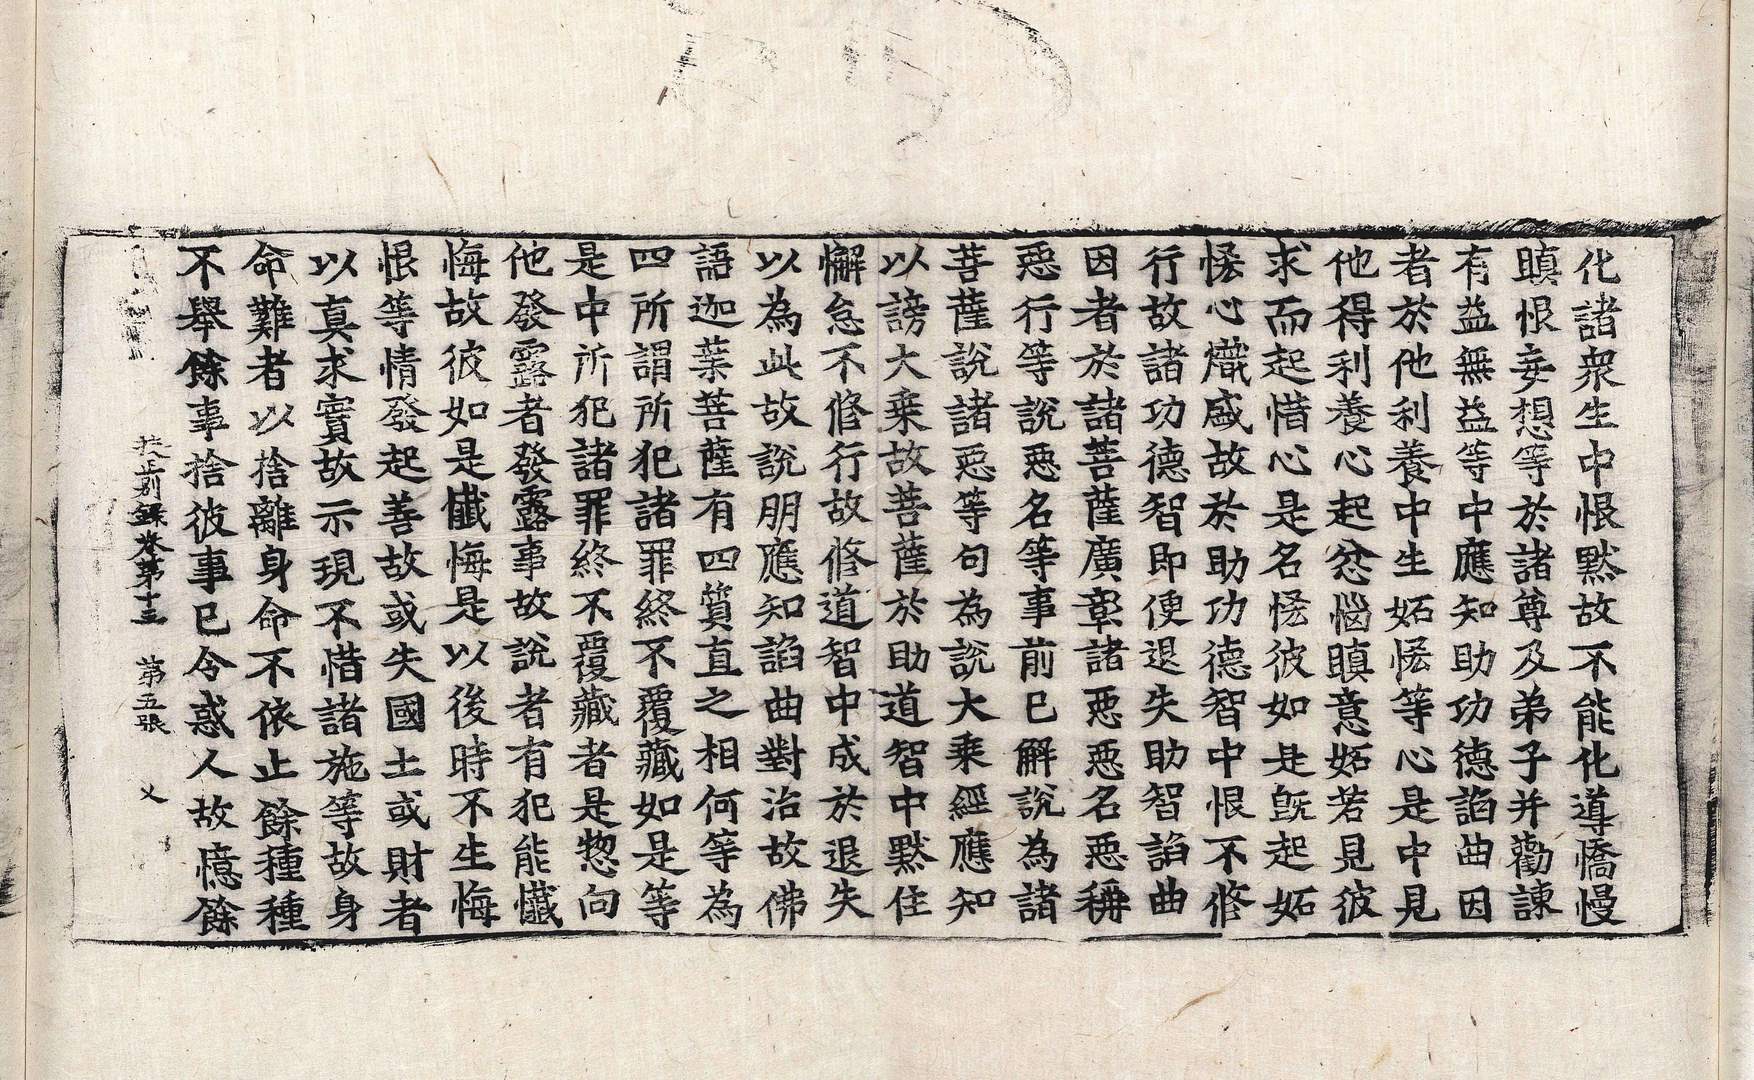 化諸衆生中恨黙故不能化導憍慢
瞋恨妄想等於諸尊及弟子并勸諫
有益無益等中應知助功德諂曲因
者於他利養中生妬恡等心是中見
他得利養心起忿惱瞋意妬若見彼
求而起惜心是名恡彼如是旣起妬
恡心熾盛故於助功德智中恨不修
行故諸功德智即便退失助智諂曲
因者於諸菩薩廣彰諸惡惡名惡稱
惡行等說惡名等事前已解說為諸
菩薩說諸惡等句為說大乘經應知
以謗大乘故菩薩於助道智中黙住
懈怠不修行故修道智中成於退失
以為此故說朋應知諂曲對治故佛
語迦葉菩薩有四質直之相何等為
四所謂所犯諸罪終不覆藏如是等
是中所犯諸罪終不覆藏者是惣向
他發露者發露事故說者有犯能懺
悔故彼如是懺悔是以後時不生悔
恨等情發起善故或失國土或財者
以真求實故示現不惜諸施等故身
命難者以捨離身命不依止餘種種
不舉餘事捨彼事已令惑人故憶餘
校正別錄卷第十三　第五張　乂